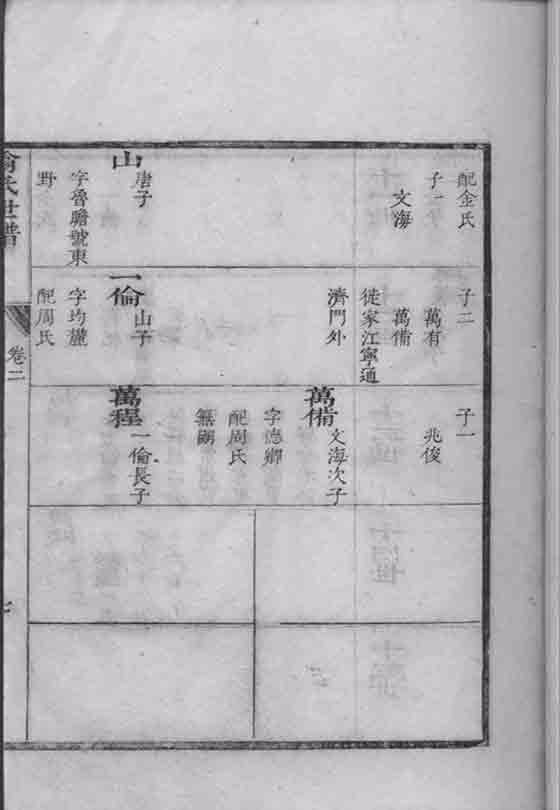 配金氏
子一
文海
山
唐子
字魯瞻號東
野
子二
萬有
萬備
徙家江寧通
濟門外
一倫
山子
字均麓
配周氏
子一
兆俊
萬備
文海次子
字德卿
配周氏
無嗣
萬程
一倫長子
俞氏世譜
卷二